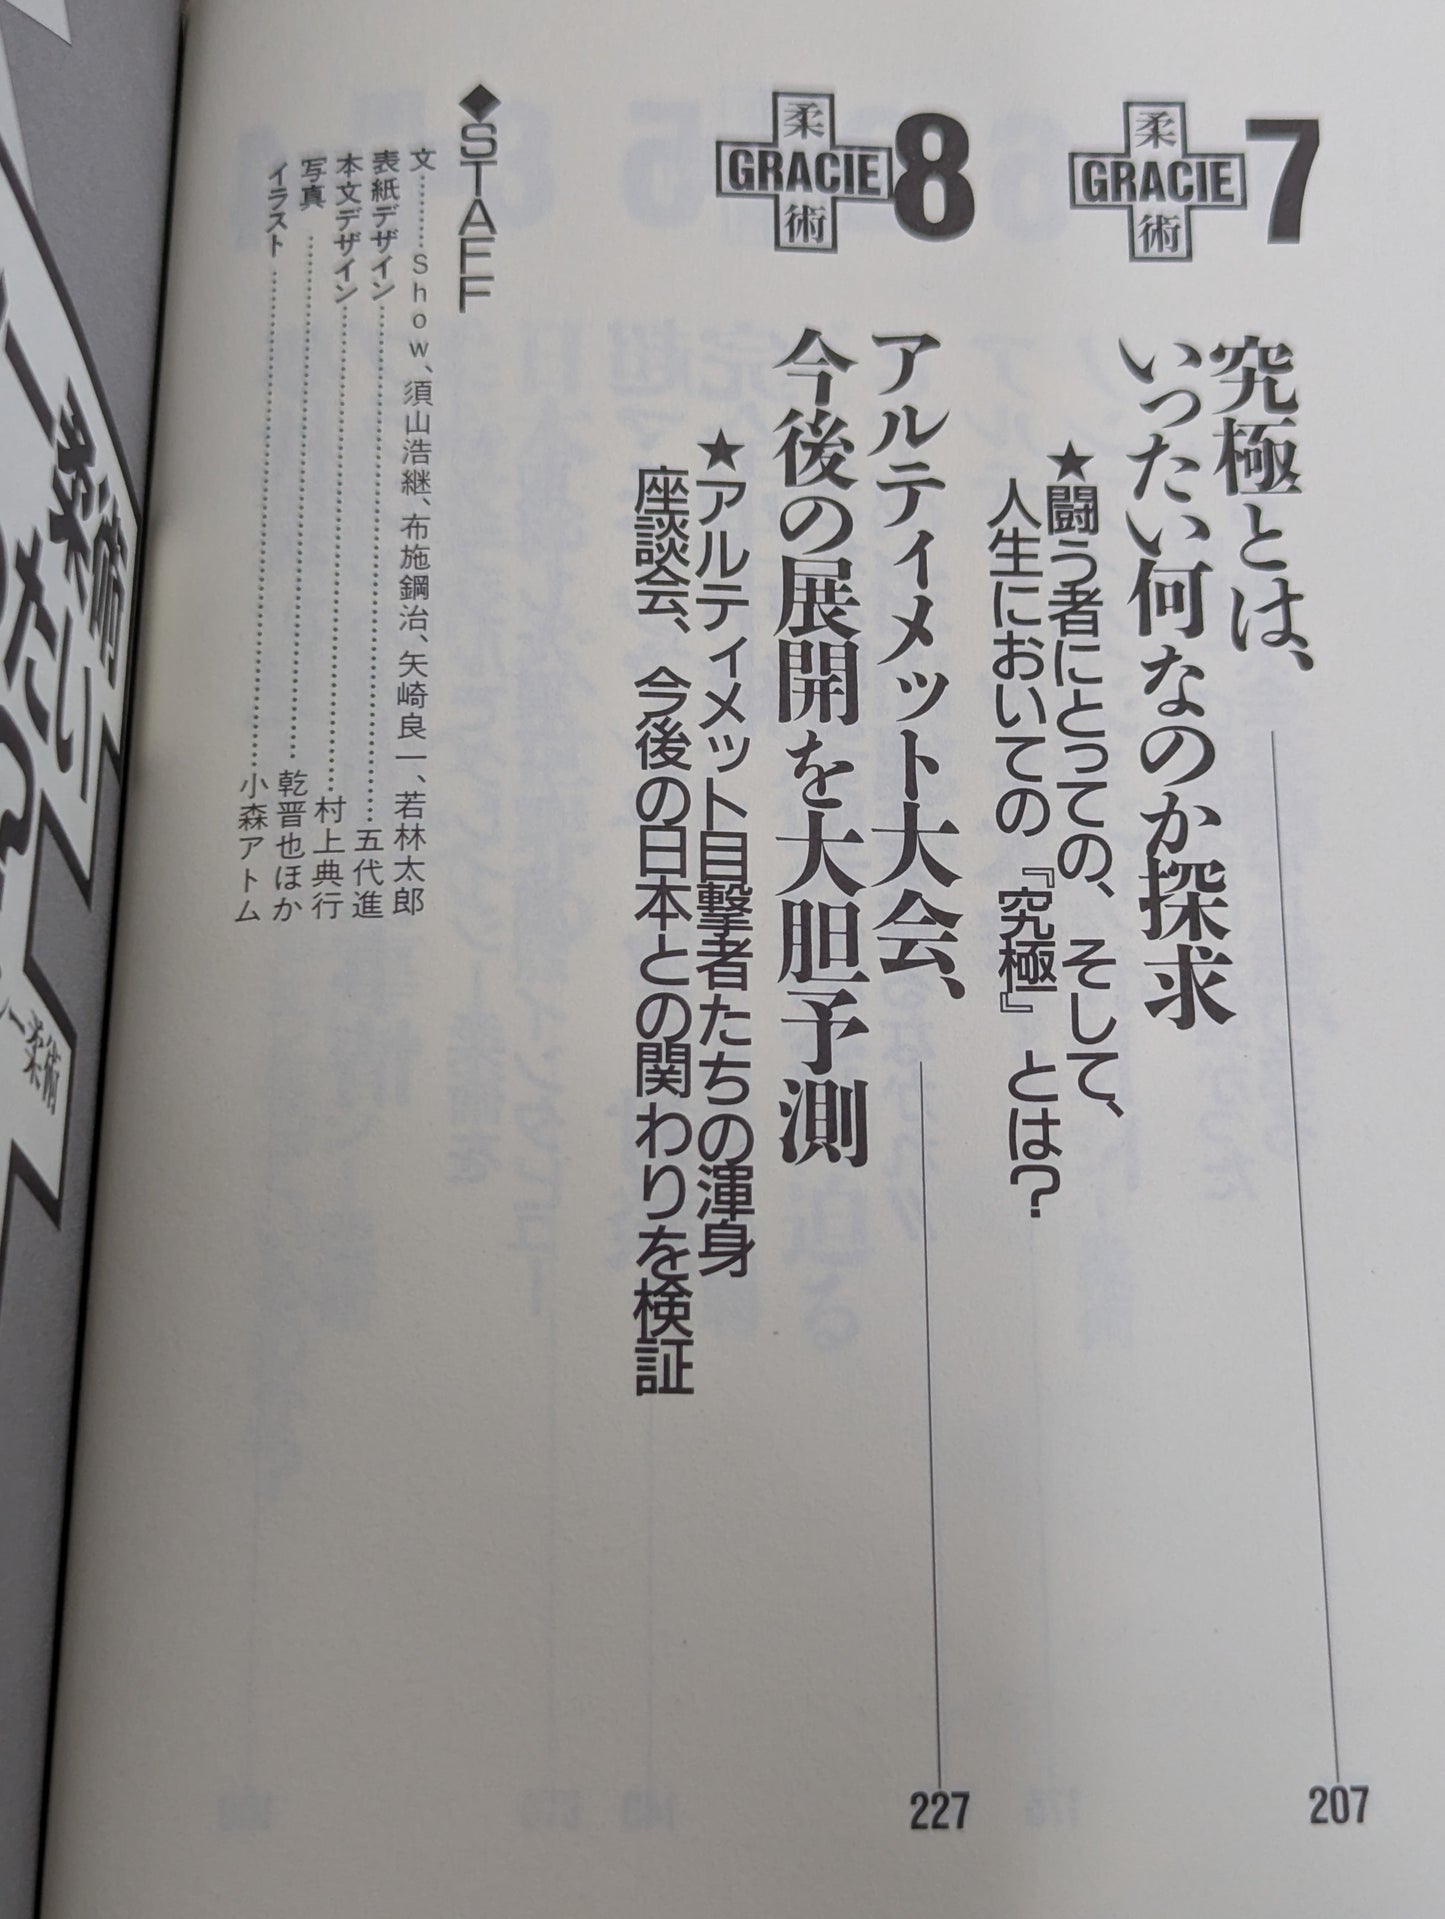 7
柔
GRACIE
術
究極とは、
いったい何なのか探求
207
★闘う者にとっての、そして、
人生においての『究極』とは?
8
柔
GRACIE
術
アルティメット大会、
今後の展開を大胆予測
227
★アルティメット目撃者たちの渾身
座談会、今後の日本との関わりを検証
◆STAFF
文………Show、須山浩継、布施鋼治、矢崎良一、若林太郎
表紙デザイン……………………五代進
本文デザイン……………………村上典行
写真……………………乾晋也ほか
イラスト……………………小森アトム
柔術
柔術